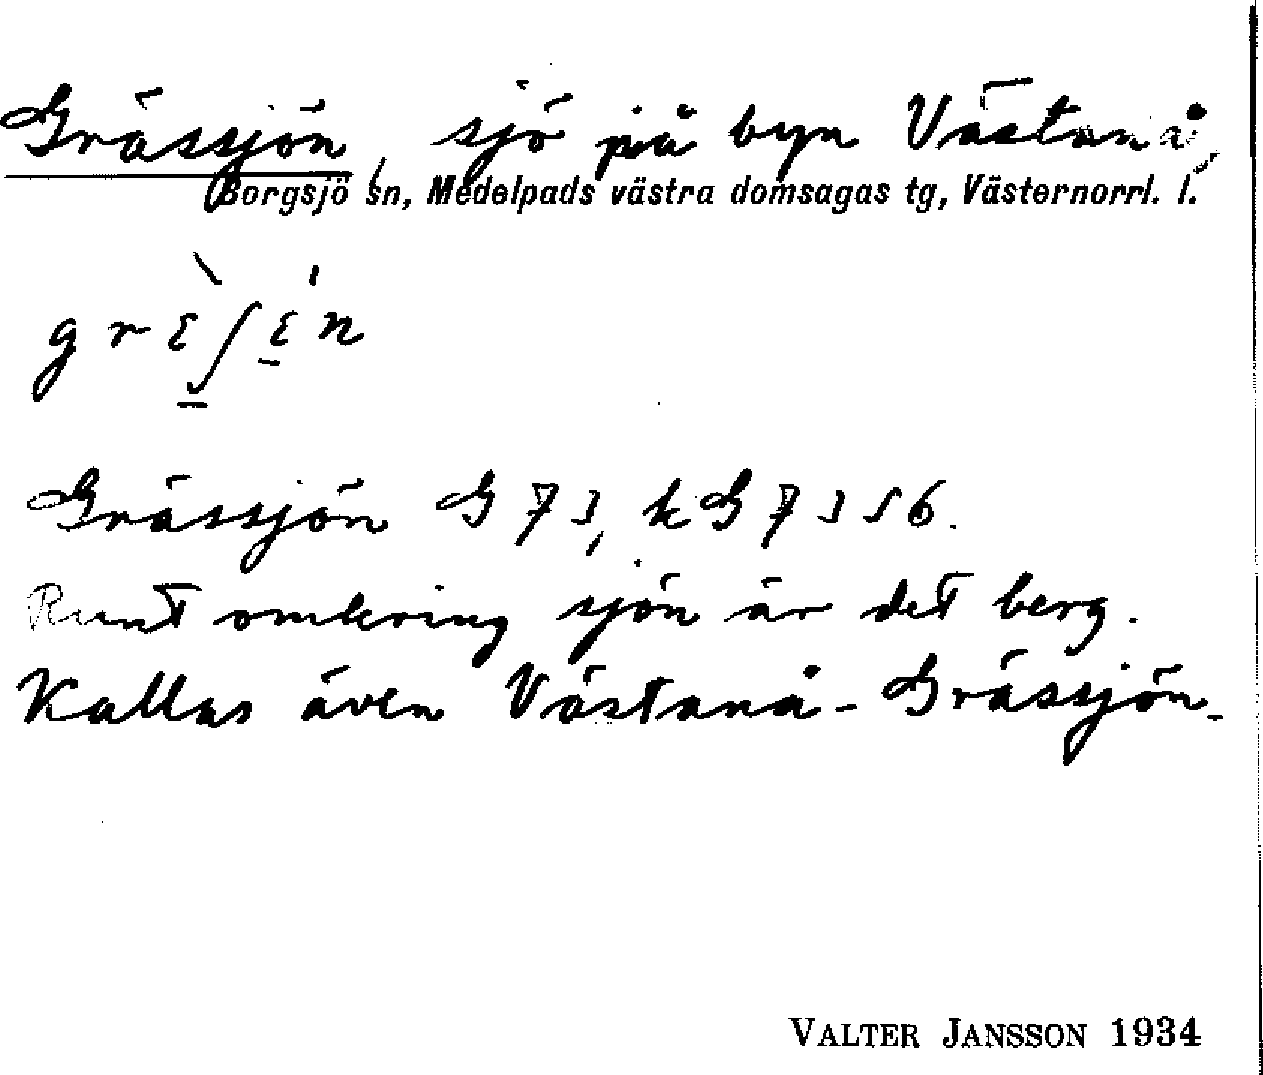 Grässjön, sjö på byn Västanå,
Borgsjö sn, Medelpads västra domsagas tg, Västernorrl. l.
Grässjön G 73, kG 7356.
Runt omkring sjön är det berg.
Kallas även Västanå-Grässjön.
VALTER JANSSON 1934